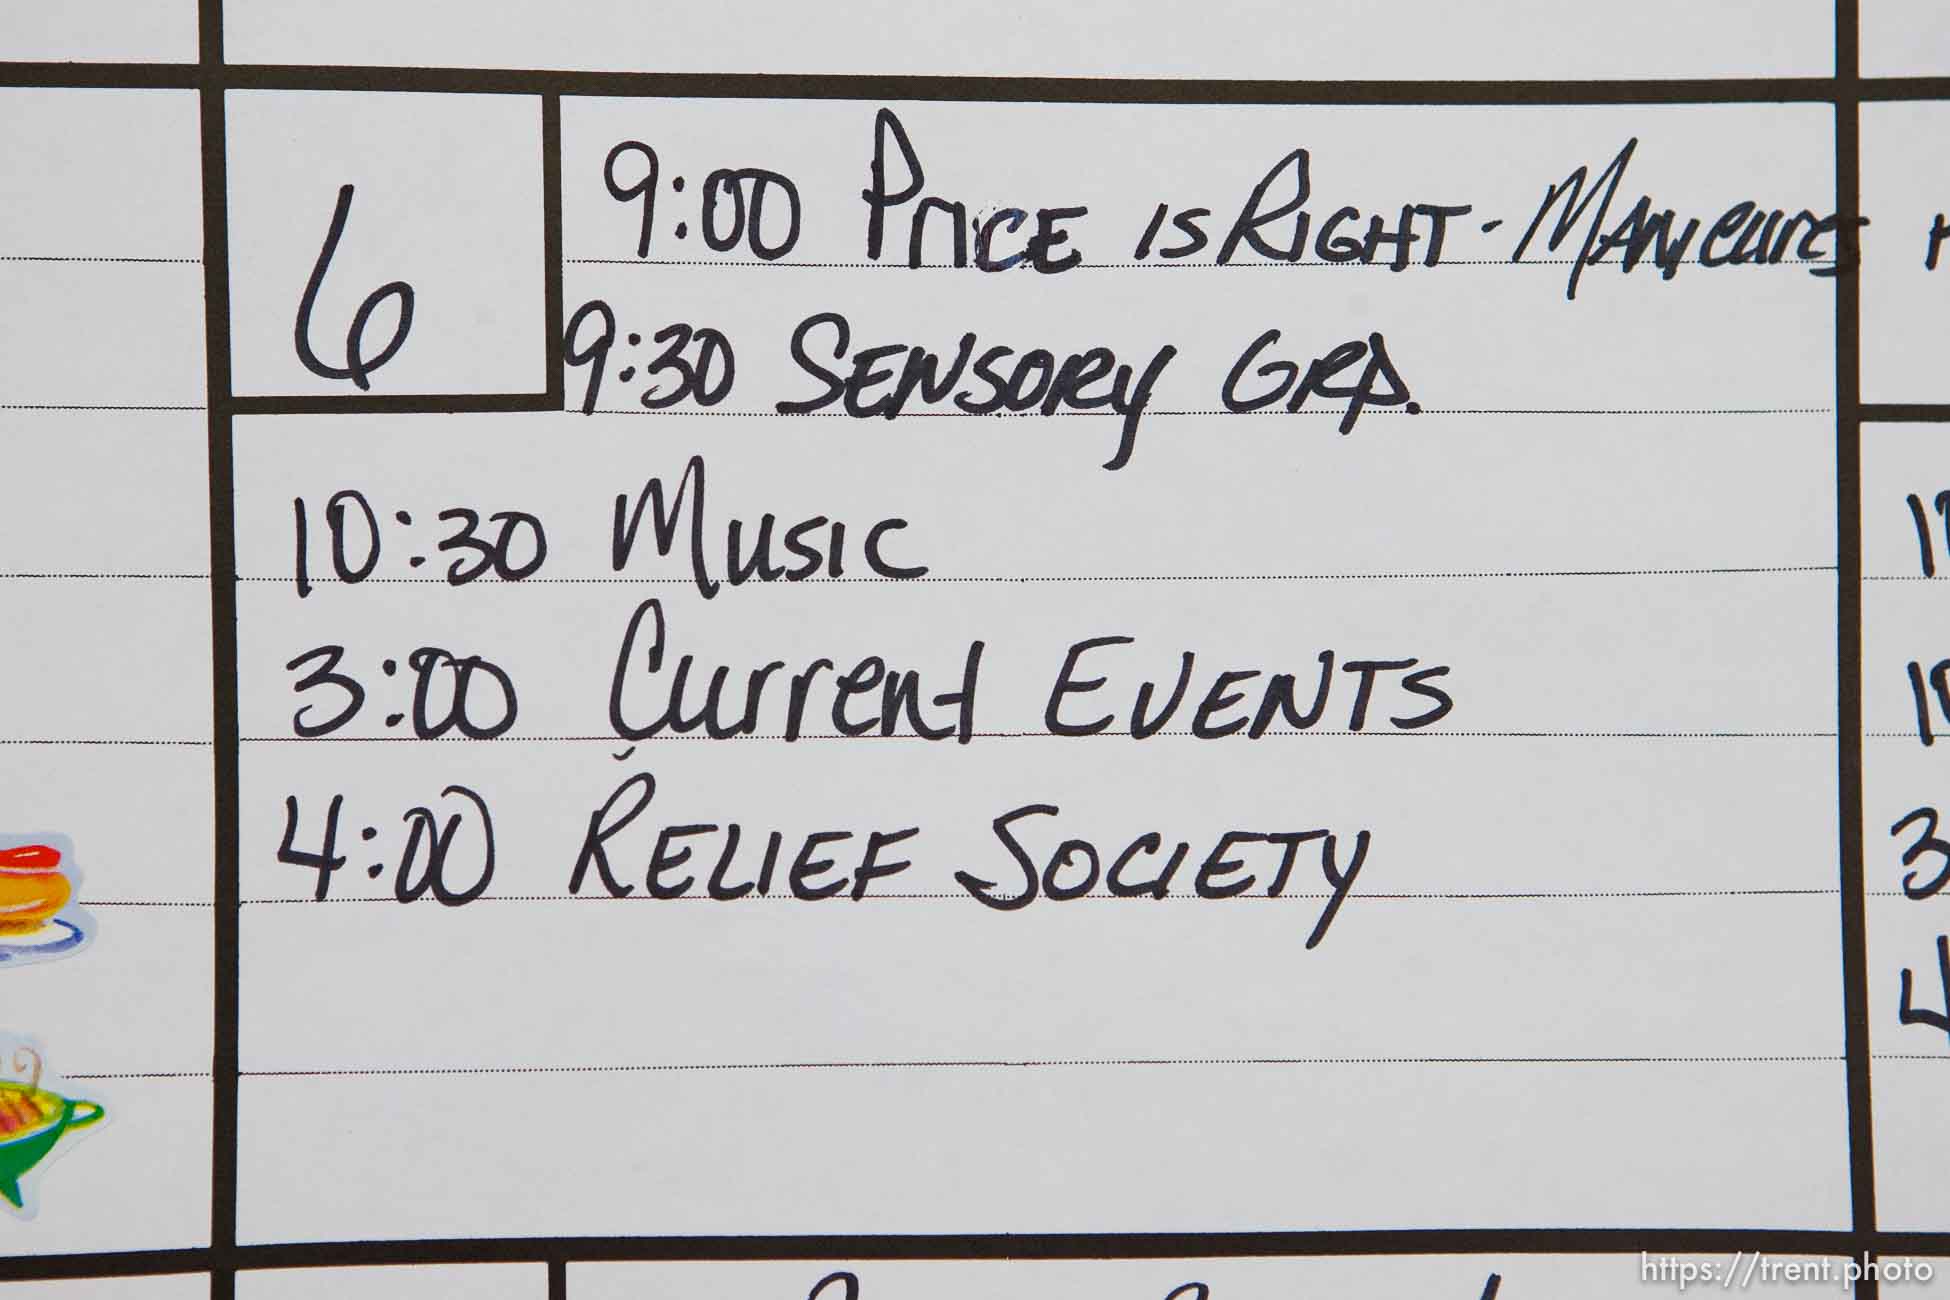 6
9:00 PRICE IS RIGHT - MANicures
9:30 SENSORY GRP.
10:30 MUSIC
3:00 Current EVENTS
4:00 RELIEF SOCIETY
3
4
https://trent.photo